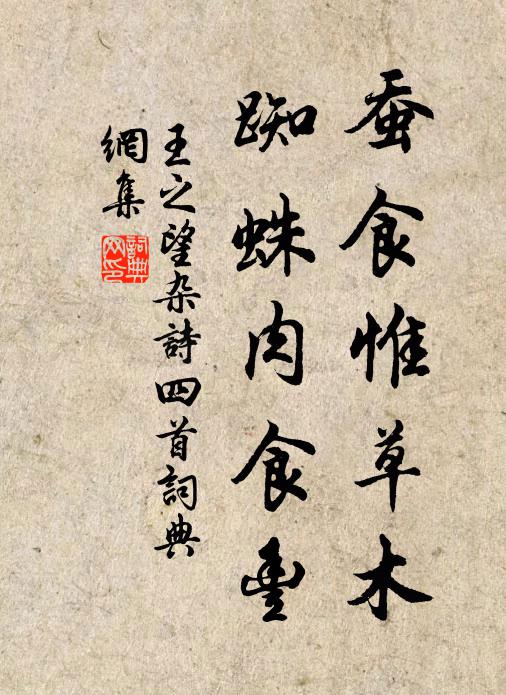 蚕食惟草木
踟蛛肉食豊
王之望杂詩四首詞典
網集
詞典
网印